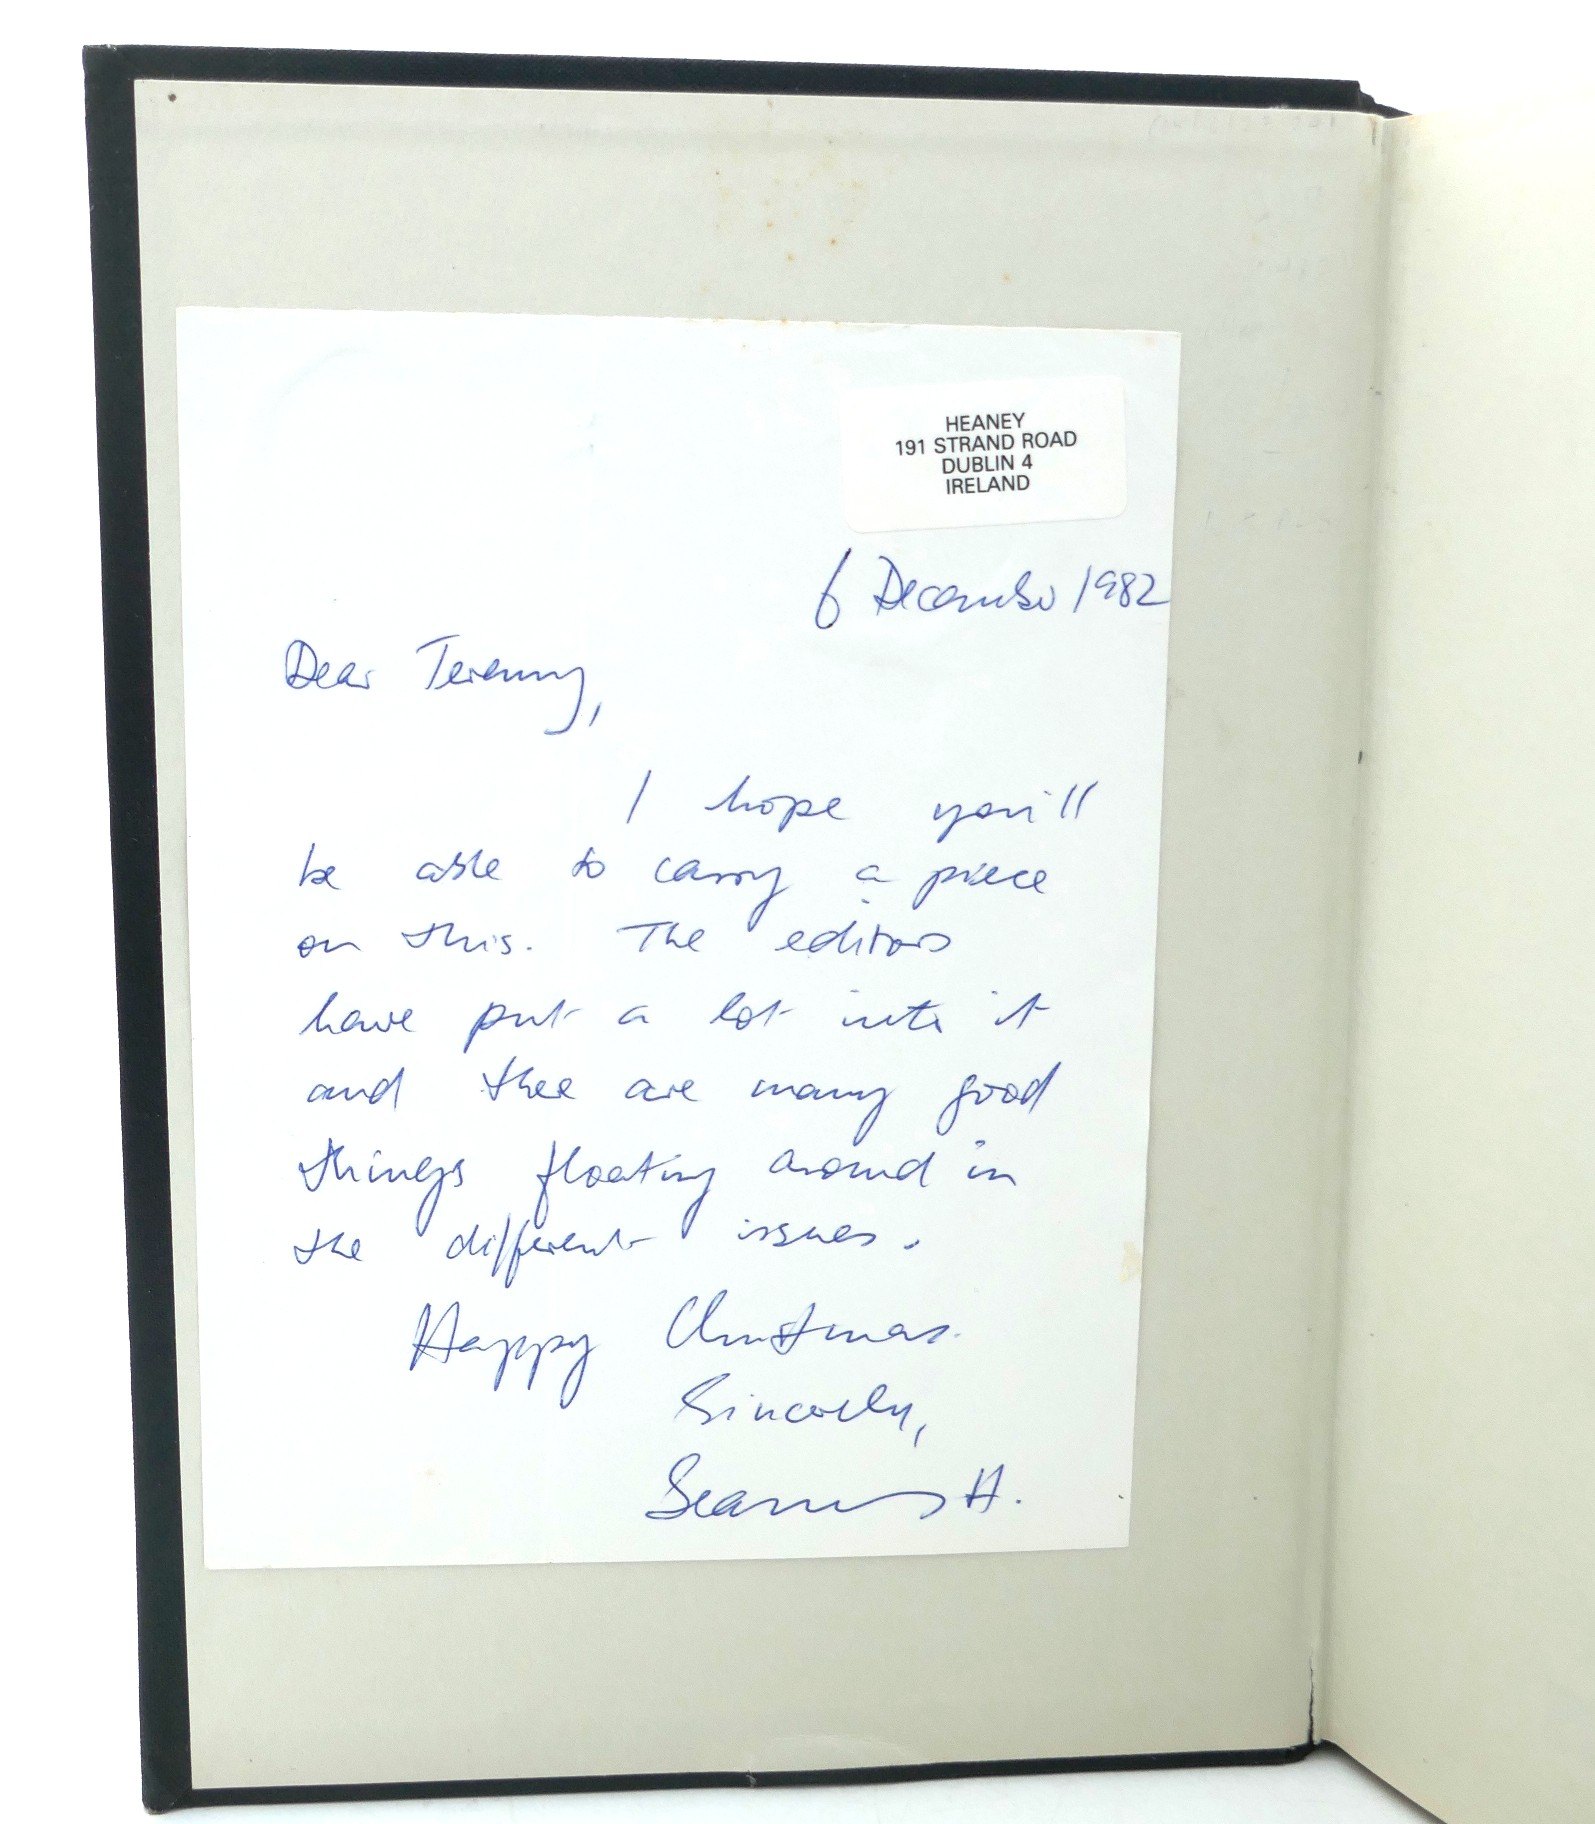 HEANEY
191 STRAND ROAD
DUBLIN 4
IRELAND
6 December 1982
Dear
I hope you'll
be able to carry a piece
on this. The editors
have put a lot into it
and there are many good
things floating around in
the different issues.
Happy Christmas.
Sincerely,
Seamus H.